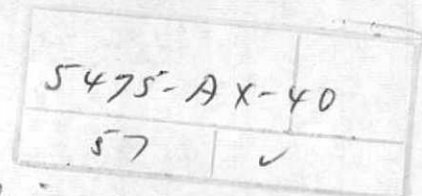 5475-AX-40
57 ✓